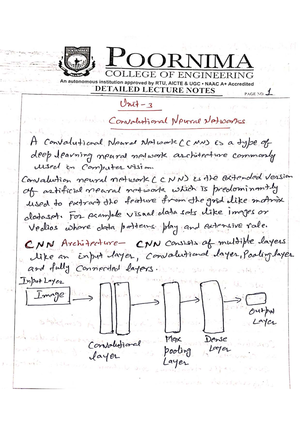 POORNIMA
COLLEGE OF ENGINEERING
An autonomous institution approved by RTU, AICTE & UGC • NAAC A+ Accredited
DETAILED LECTURE NOTES
PAGE NO. 1
Unit-3
Convolutional Neural Networks
A Convolutional Neural Network (CNN) is a type of
deep learning neural network architecture commonly
used in Computer vision.
Convolution neural network (CNN) is the extended version
of artificial neural network which is predominantly
used to extract the feature from the grid like matrix
dataset. For example visual data sets like images or
Vedios where data patterns play and extensive role.
CNN Architecture- CNN consists of multiple layers
like an input layer, Convolutional layer, Pooling layer
and fully Connected layers.
Input Layer
Image
Convolutional layer
Max pooling Layer
Dense Layer
Output Layer